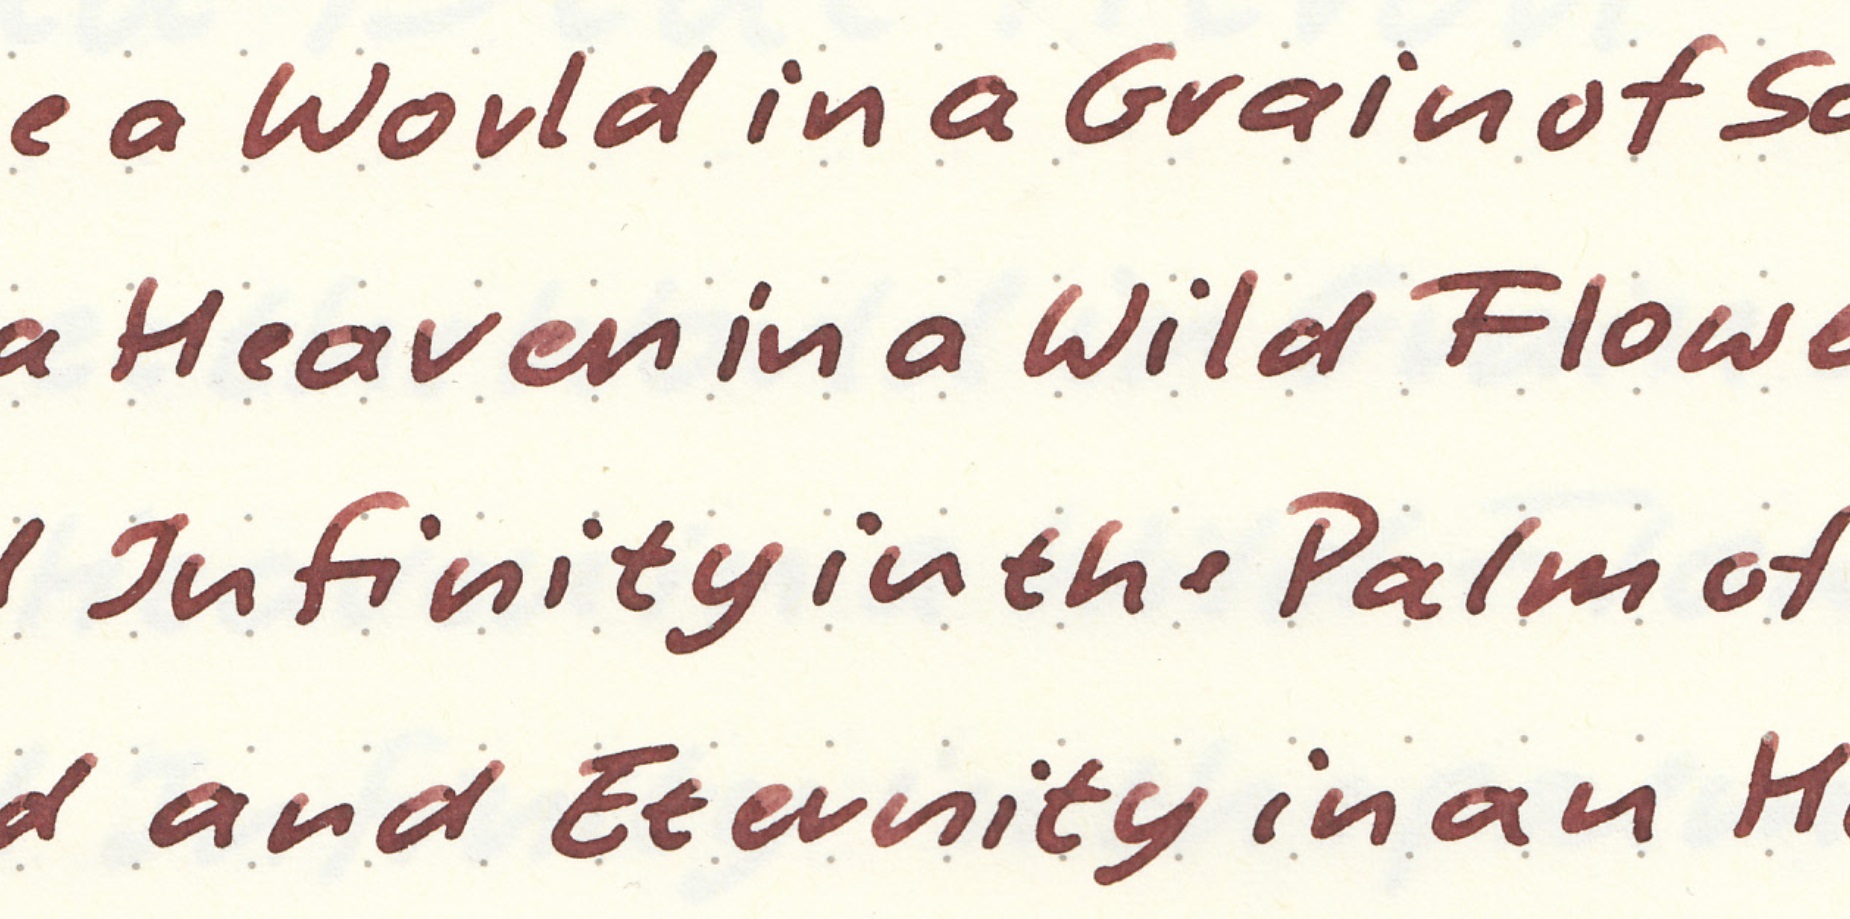 e a World in a Grain of Sa
a Heaven in a Wild Flowe
l Infinity in the Palm of
d and Eternity in an Ho